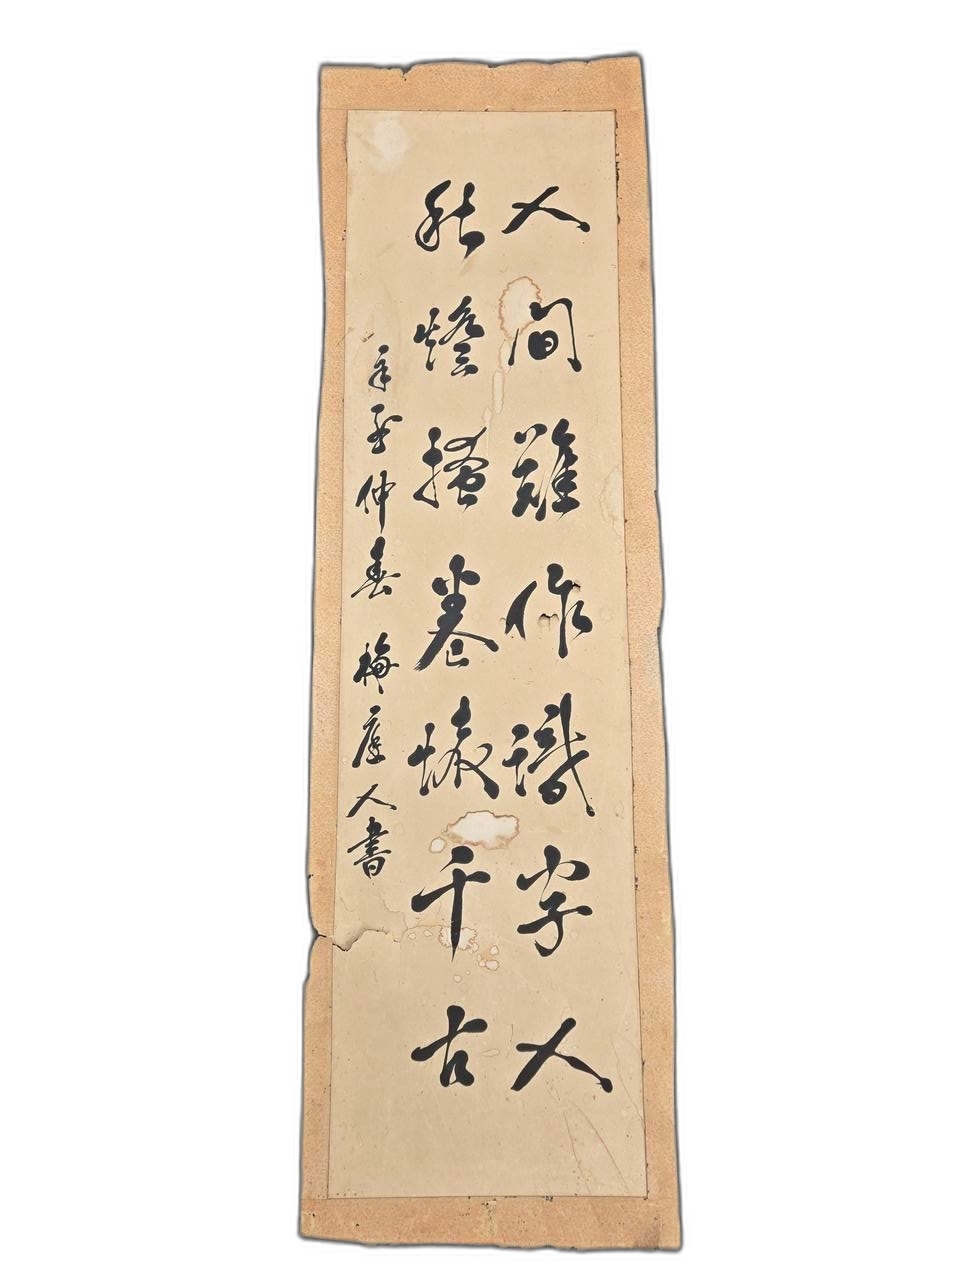 人間難作識字人
秋燈掩卷懷千古
辛酉仲春 梅庭人書